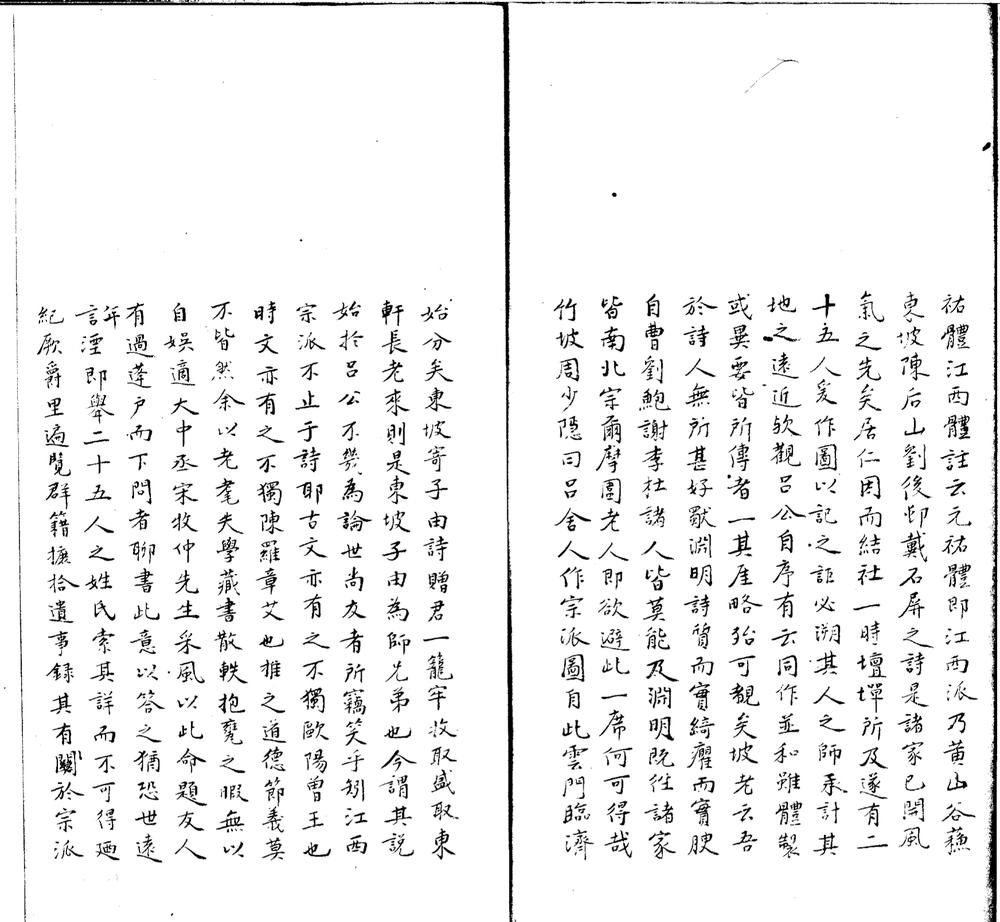 祐體江西體註云元祐體即江西派乃黃山谷蘇
東坡陳后山劉後邨戴石屏之詩是諸家已開風
氣之先矣居仁因而結社一時壇墠所及遂有二
十五人爰作圖以記之詎必溯其人之師承計其
地之遠近歟觀呂公自序有云同作並和雖體製
或異要皆所傳者一其厓略殆可覩矣坡老云吾
於詩人無所甚好獨淵明詩質而實綺癯而實腴
自曹劉鮑謝李杜諸人皆莫能及淵明既往諸家
皆南北宗爾摩圍老人即欲避此一席何可得哉
竹坡周少隱曰呂舍人作宗派圖自此雲門臨濟
始分矣東坡寄子由詩贈君一籠牢收取盛取東
軒長老來則是東坡子由為師兄弟也今謂其說
始於呂公不幾為論世尚友者所竊笑乎矧江西
宗派不止于詩耶古文亦有之不獨歐陽曾王也
時文亦有之不獨陳羅章艾也推之道德節義莫
不皆然余以老耄失學藏書散軼抱甕之暇無以
自娛適大中丞宋牧仲先生采風以此命題友人
有過蓬戶而下問者聊書此意以答之猶恐世遠
年湮即舉二十五人之姓氏索其詳而不可得迺
紀厥爵里遍覽群籍摭拾遺事錄其有關於宗派